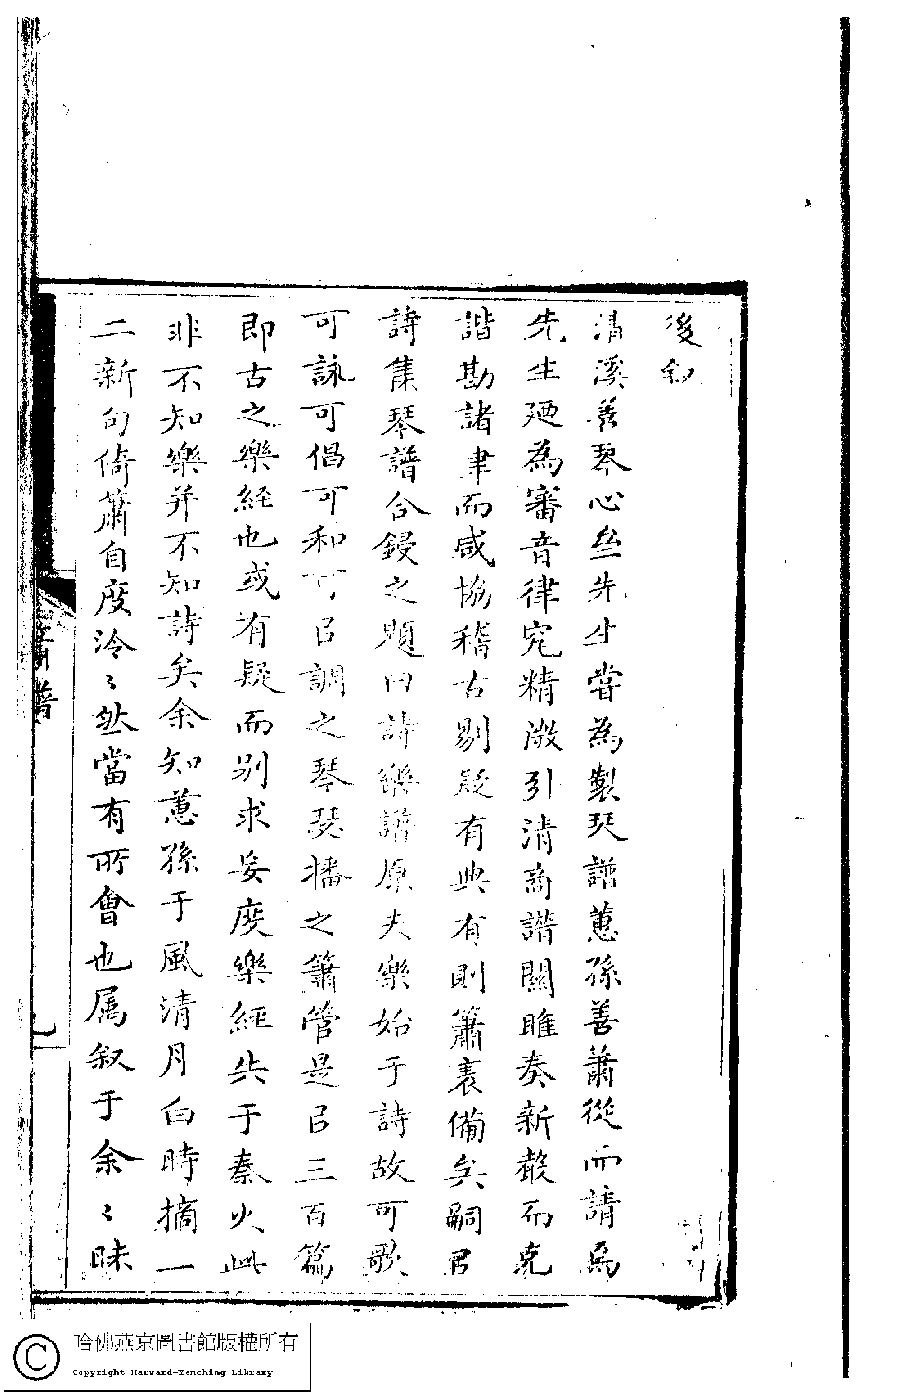 後叙
清溪善琴心壘先生嘗為製琴譜蕙孫善簫從而請焉
先生廼為審音律究精微引清商譜關雎奏新聲而克
諧勘諸聿而咸協稽古剔疑有典有則簫裹備矣嗣㠯
詩集琴譜合鋟之題曰詩樂譜原夫樂始于詩故可歌
可詠可倡可和可㠯調之琴瑟播之簫管是㠯三百篇
即古之樂經也或有疑而别求妄度樂經失于秦火此
非不知樂并不知詩矣余知蕙孫于風清月白時摘一
二新句倚簫自度泠〻然當有所會也属叙于余〻昧
簫譜
九
哈佛燕京圖書館版權所有
Copyright Harvard-Yenching Library